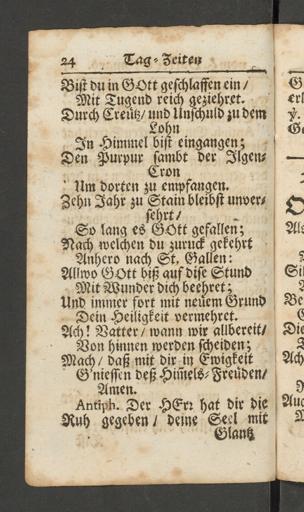 24 Tag-Zeiten
Bist du in GOtt geschlaffen ein /
Mit Tugend reich geziehret.
Durch Creütz/ und Unschuld zu dem
Lohn
In Himmel bist eingangen;
Den Purpur sambt der Ilgen-
Cron
Um dorten zu empfangen.
Zehn Jahr zu Stain bleibst unver-
sehrt /
So lang es GOtt gefallen;
Nach welchen du zuruck gekehrt
Anhero nach St. Gallen:
Allwo GOtt biß auf dise Stund
Mit Wunder dich beehret;
Und immer fort mit neüem Grund
Dein Heiligkeit vermehret.
Ach! Vatter/ wann wir allbereit/
Von hinnen werden scheiden;
Mach/ daß mit dir in Ewigkeit
G'niessen deß Him̄els-Freuden/
Amen.
Antiph. Der HErr hat dir die
Ruh gegeben / deine Seel mit
Glantz